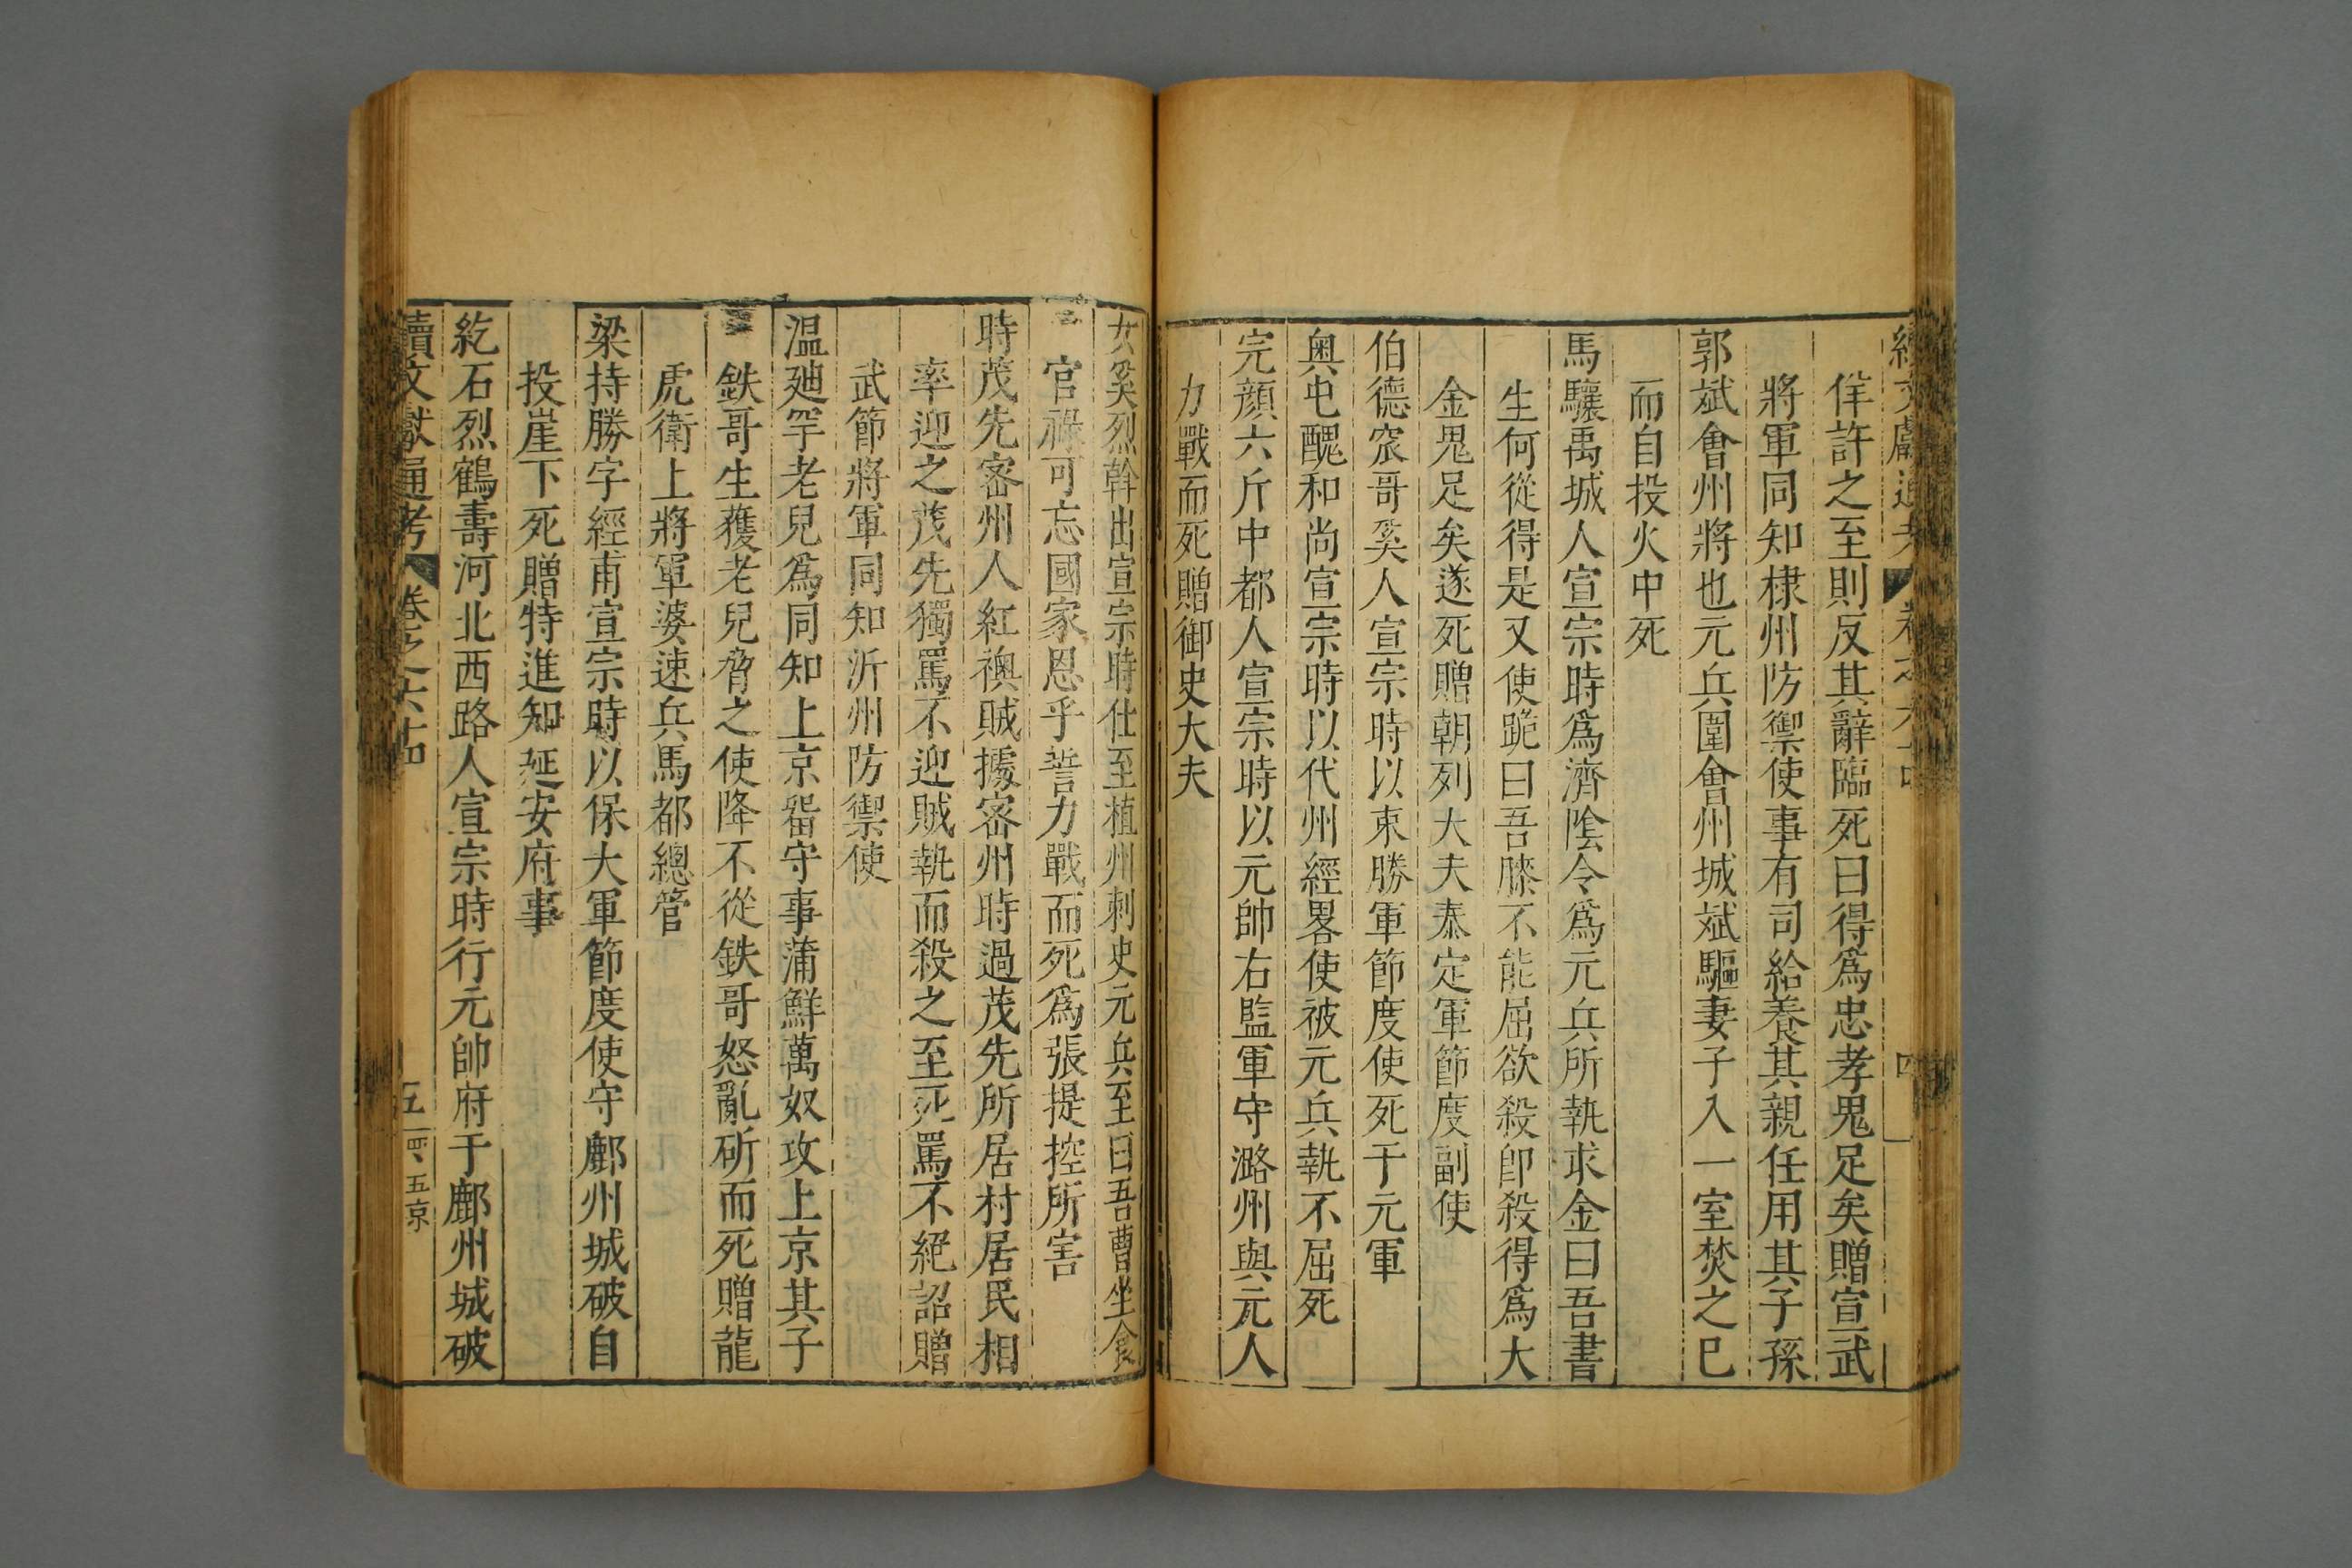 續文獻通考 卷之六十四 四
佯許之至則反其辭臨死曰得爲忠孝鬼足矣贈宣武
將軍同知棣州防禦使事有司給養其親任用其子孫
郭斌會州將也元兵圍會州城斌驅妻子入一室焚之巳
而自投火中死
馬驤禹城人宣宗時爲濟陰令爲元兵所執求金曰吾書
生何從得是又使跪曰吾膝不能屈欲殺卽殺得爲大
金鬼足矣遂死贈朝列大夫泰定軍節度副使
伯德窊哥奚人宣宗時以東勝軍節度使死于元軍
奥屯醜和尚宣宗時以代州經畧使被元兵執不屈死
完顔六斤中都人宣宗時以元帥右監軍守潞州與元人
力戰而死贈御史大夫
女奚烈斡出宣宗時仕至植州刺史元兵至曰吾曹坐食
官祿可忘國家恩乎誓力戰而死爲張提控所害
時茂先密州人紅襖賊據密州時過茂先所居村居民相
率迎之茂先獨罵不迎賊執而殺之至死罵不絕詔贈
武節將軍同知沂州防禦使
温廸罕老兒爲同知上京畱守事蒲鮮萬奴攻上京其子
鉄哥生獲老兒脅之使降不從鉄哥怒亂斫而死贈龍
虎衛上將軍婆速兵馬都總管
梁持勝字經甫宣宗時以保大軍節度使守鄜州城破自
投崖下死贈特進知延安府事
紇石烈鶴壽河北西路人宣宗時行元帥府于鄜州城破
續文獻通考 卷之六十四 五 四、五京